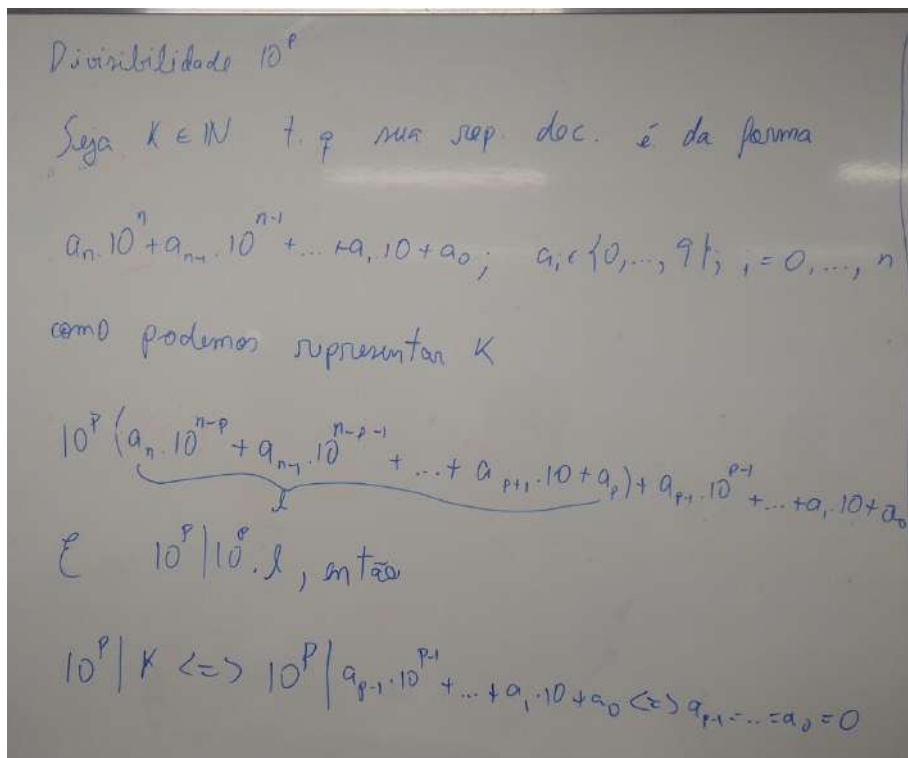 Divisibilidade 10^p
Seja K ∈ ℕ t. q sua rep. dec. é da forma
a_n.10^n + a_{n-1}.10^{n-1} + ... + a_1.10 + a_0; a_i ∈ {0,..., 9}; i = 0,..., n
como podemos representar K
10^p (a_n.10^{n-p} + a_{n-1}.10^{n-p-1} + ... + a_{p+1}.10 + a_p) + a_{p-1}.10^{p-1} + ... + a_1.10 + a_0
l
E 10^p | 10^p.l, então
10^p | K <=> 10^p | a_{p-1}.10^{p-1} + ... + a_1.10 + a_0 <=> a_{p-1} = ... = a_0 = 0